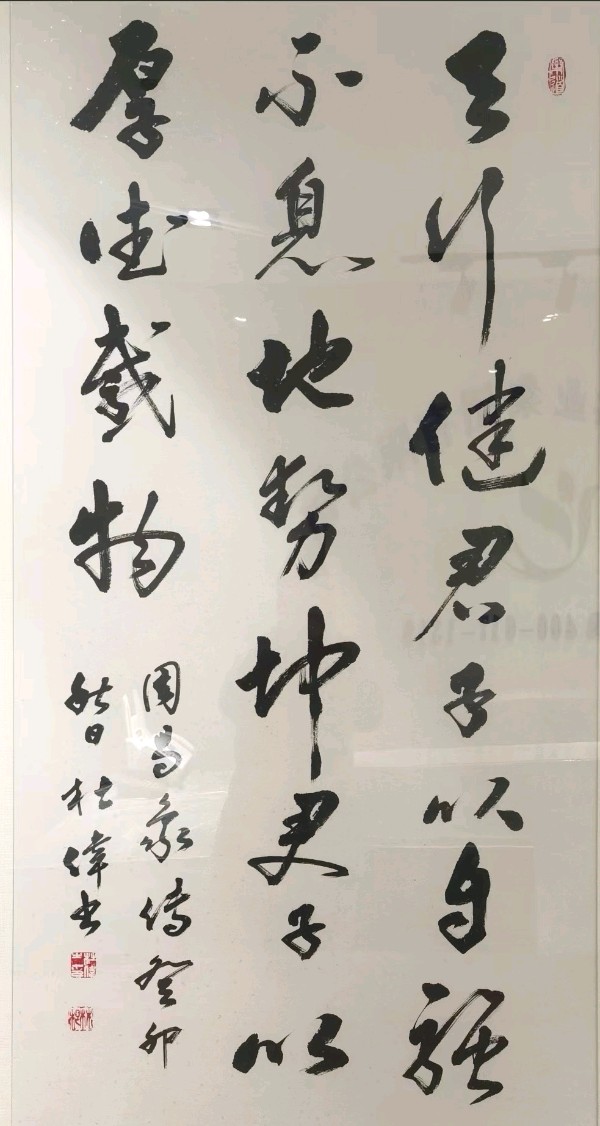 天行健君子以自强
不息地势坤君子以
厚德载物
周易象传癸卯
秋日杜伟书